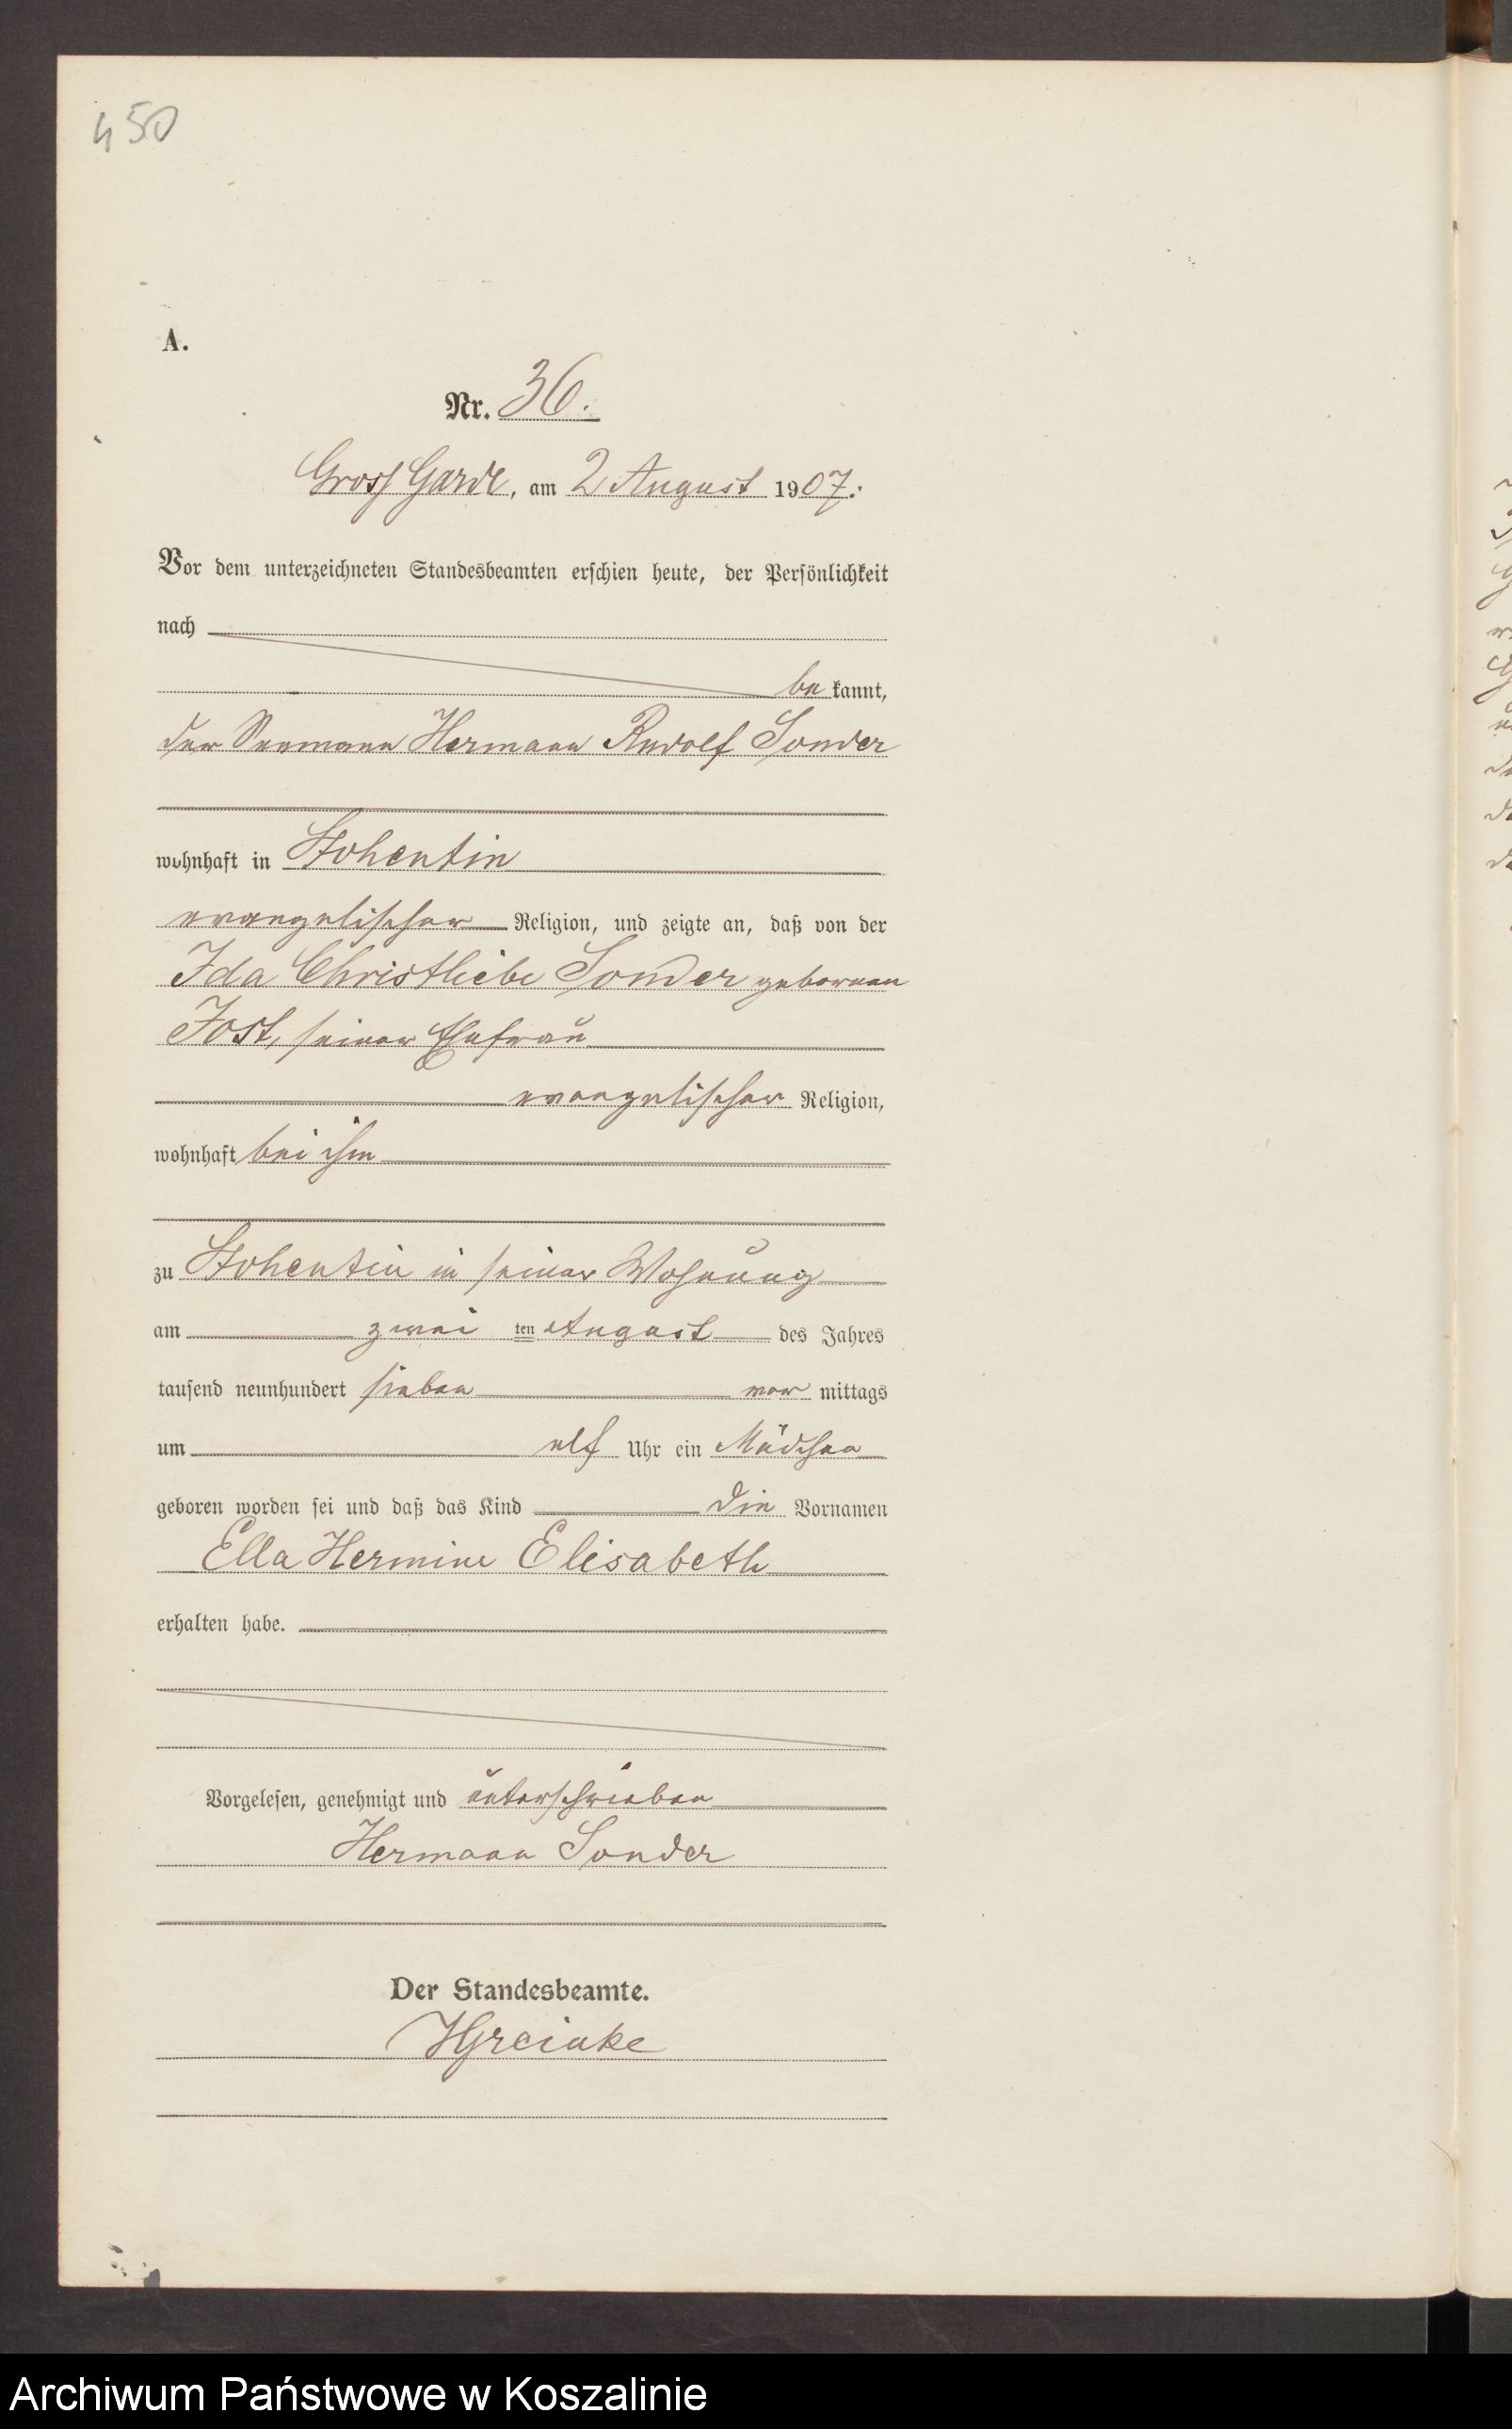 450
A.
Nr. 36.
Gross Garde, am 2 August 1907.
Vor dem unterzeichneten Standesbeamten erschien heute, der Persönlichkeit
nach
be kannt,
der Seemann Hermann Rudolf Sonder
wohnhaft in Stohentin
evangelischer Religion, und zeigte an, daß von der
Ida Christliebe Sonder geborenen
Jost, seiner Ehefrau
evangelischer Religion,
wohnhaft bei ihm
zu Stohentin in seiner Wohnung
am zwei ten August des Jahres
tausend neunhundert sieben vor mittags
um elf Uhr ein Mädchen
geboren worden sei und daß das Kind die Vornamen
Ella Hermine Elisabeth
erhalten habe.
Vorgelesen, genehmigt und unterschrieben
Hermann Sonder
Der Standesbeamte.
Archiwum Państwowe w Koszalinie